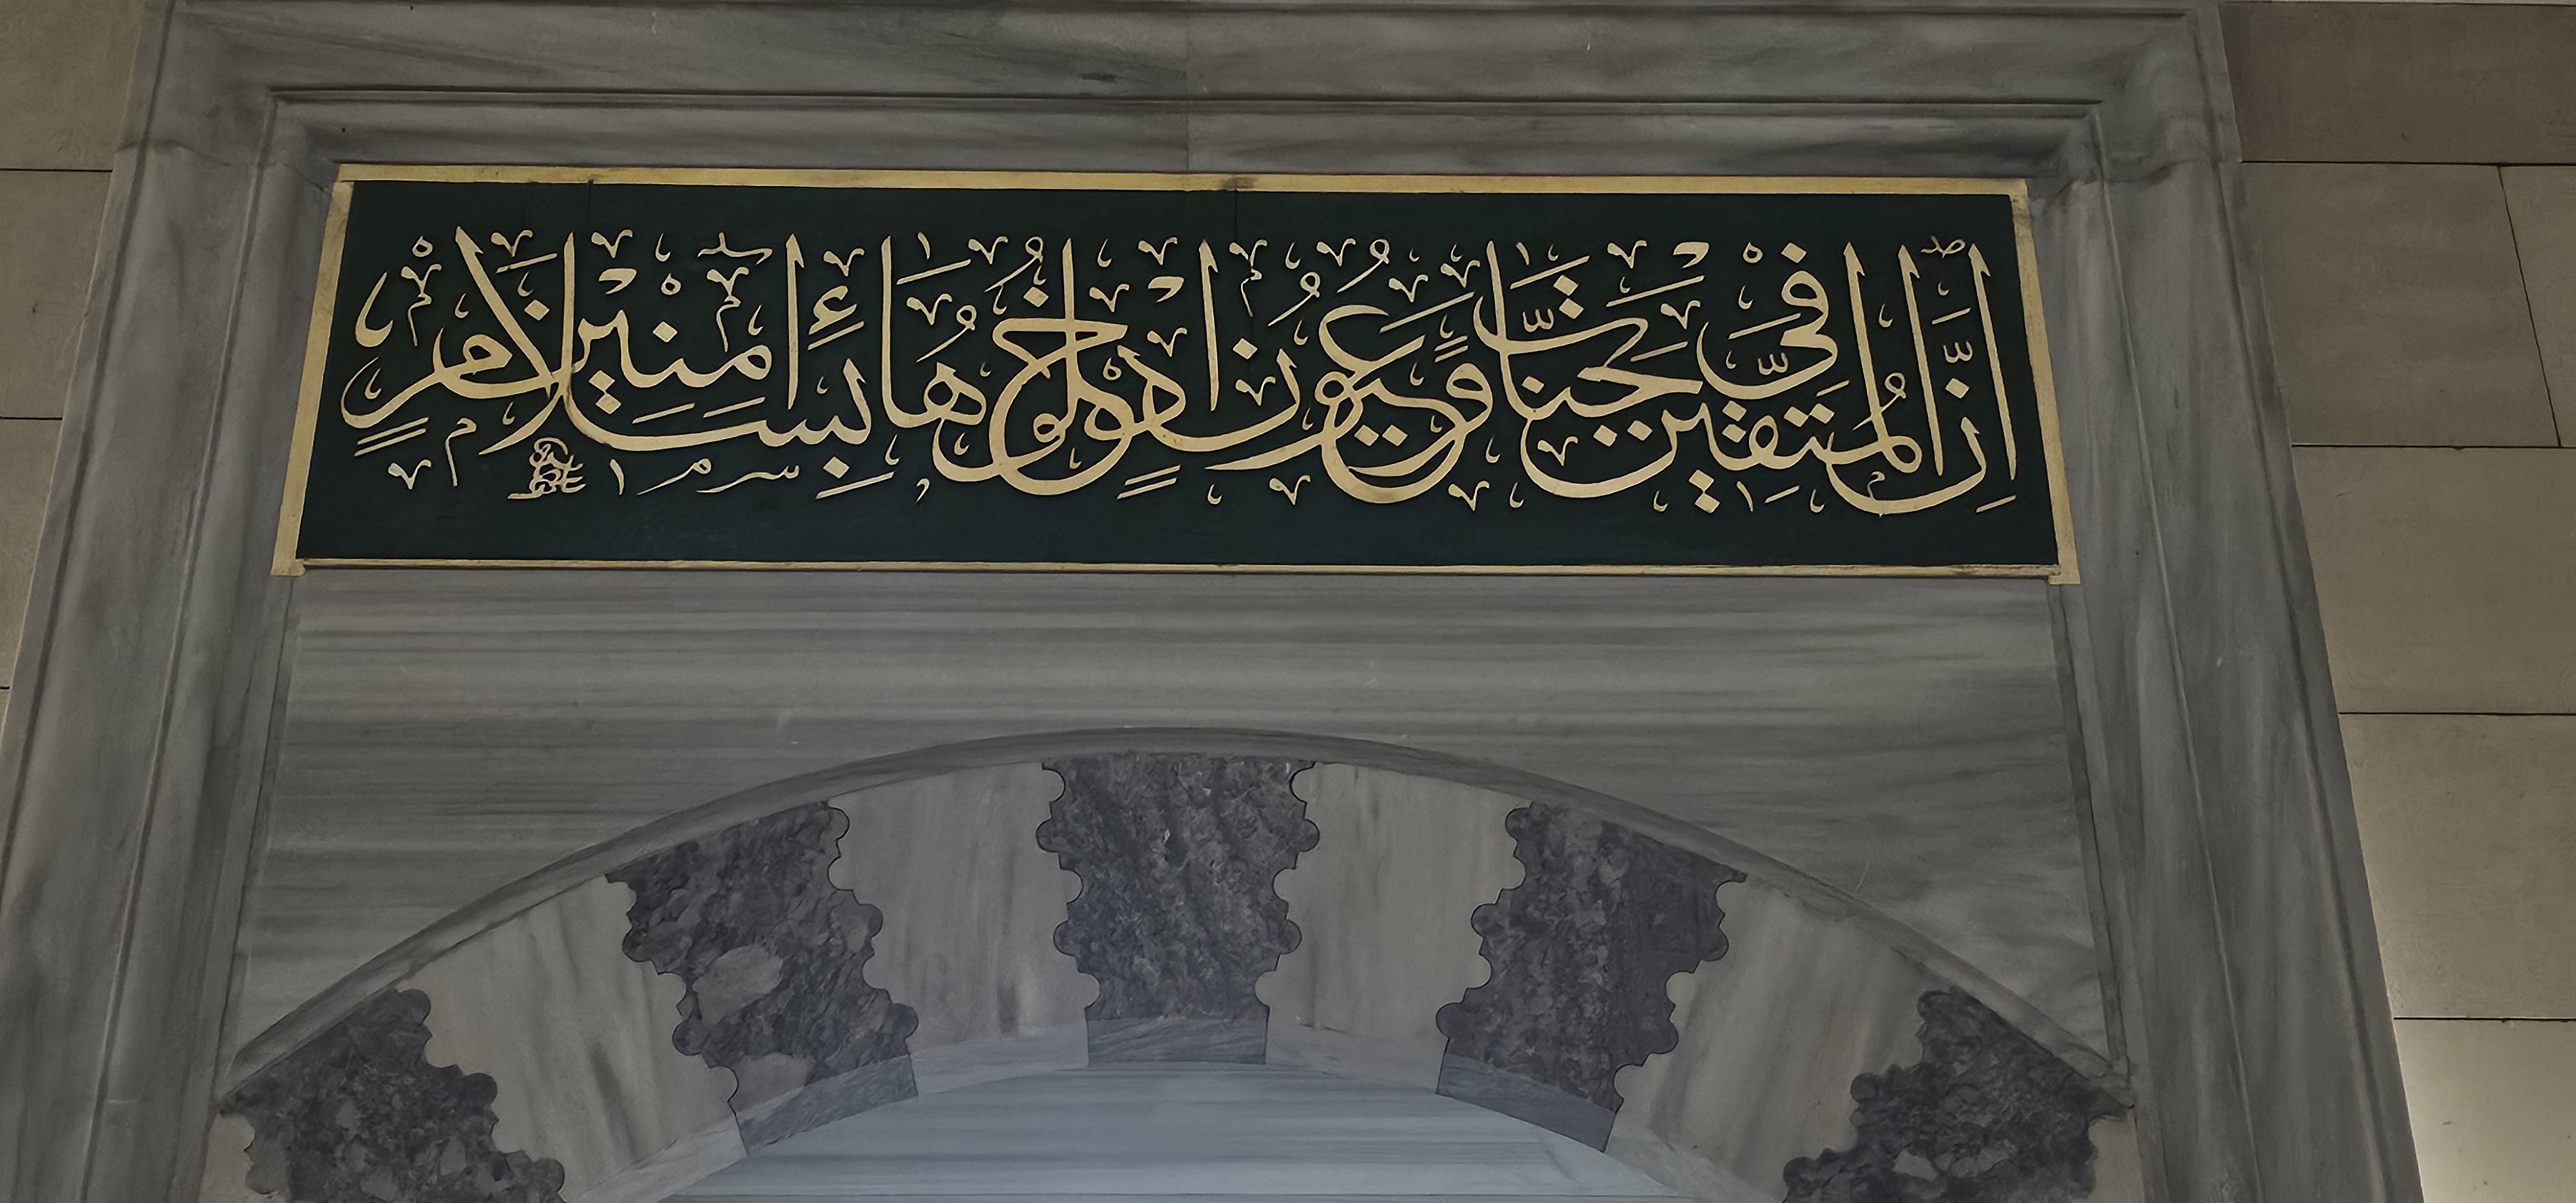 اِنَّ الْمُتَّقِينَ فِي جَنَّاتٍ وَعُيُونٍ اُدْخُلُوهَا بِسَلَامٍ اٰمِنِينَ